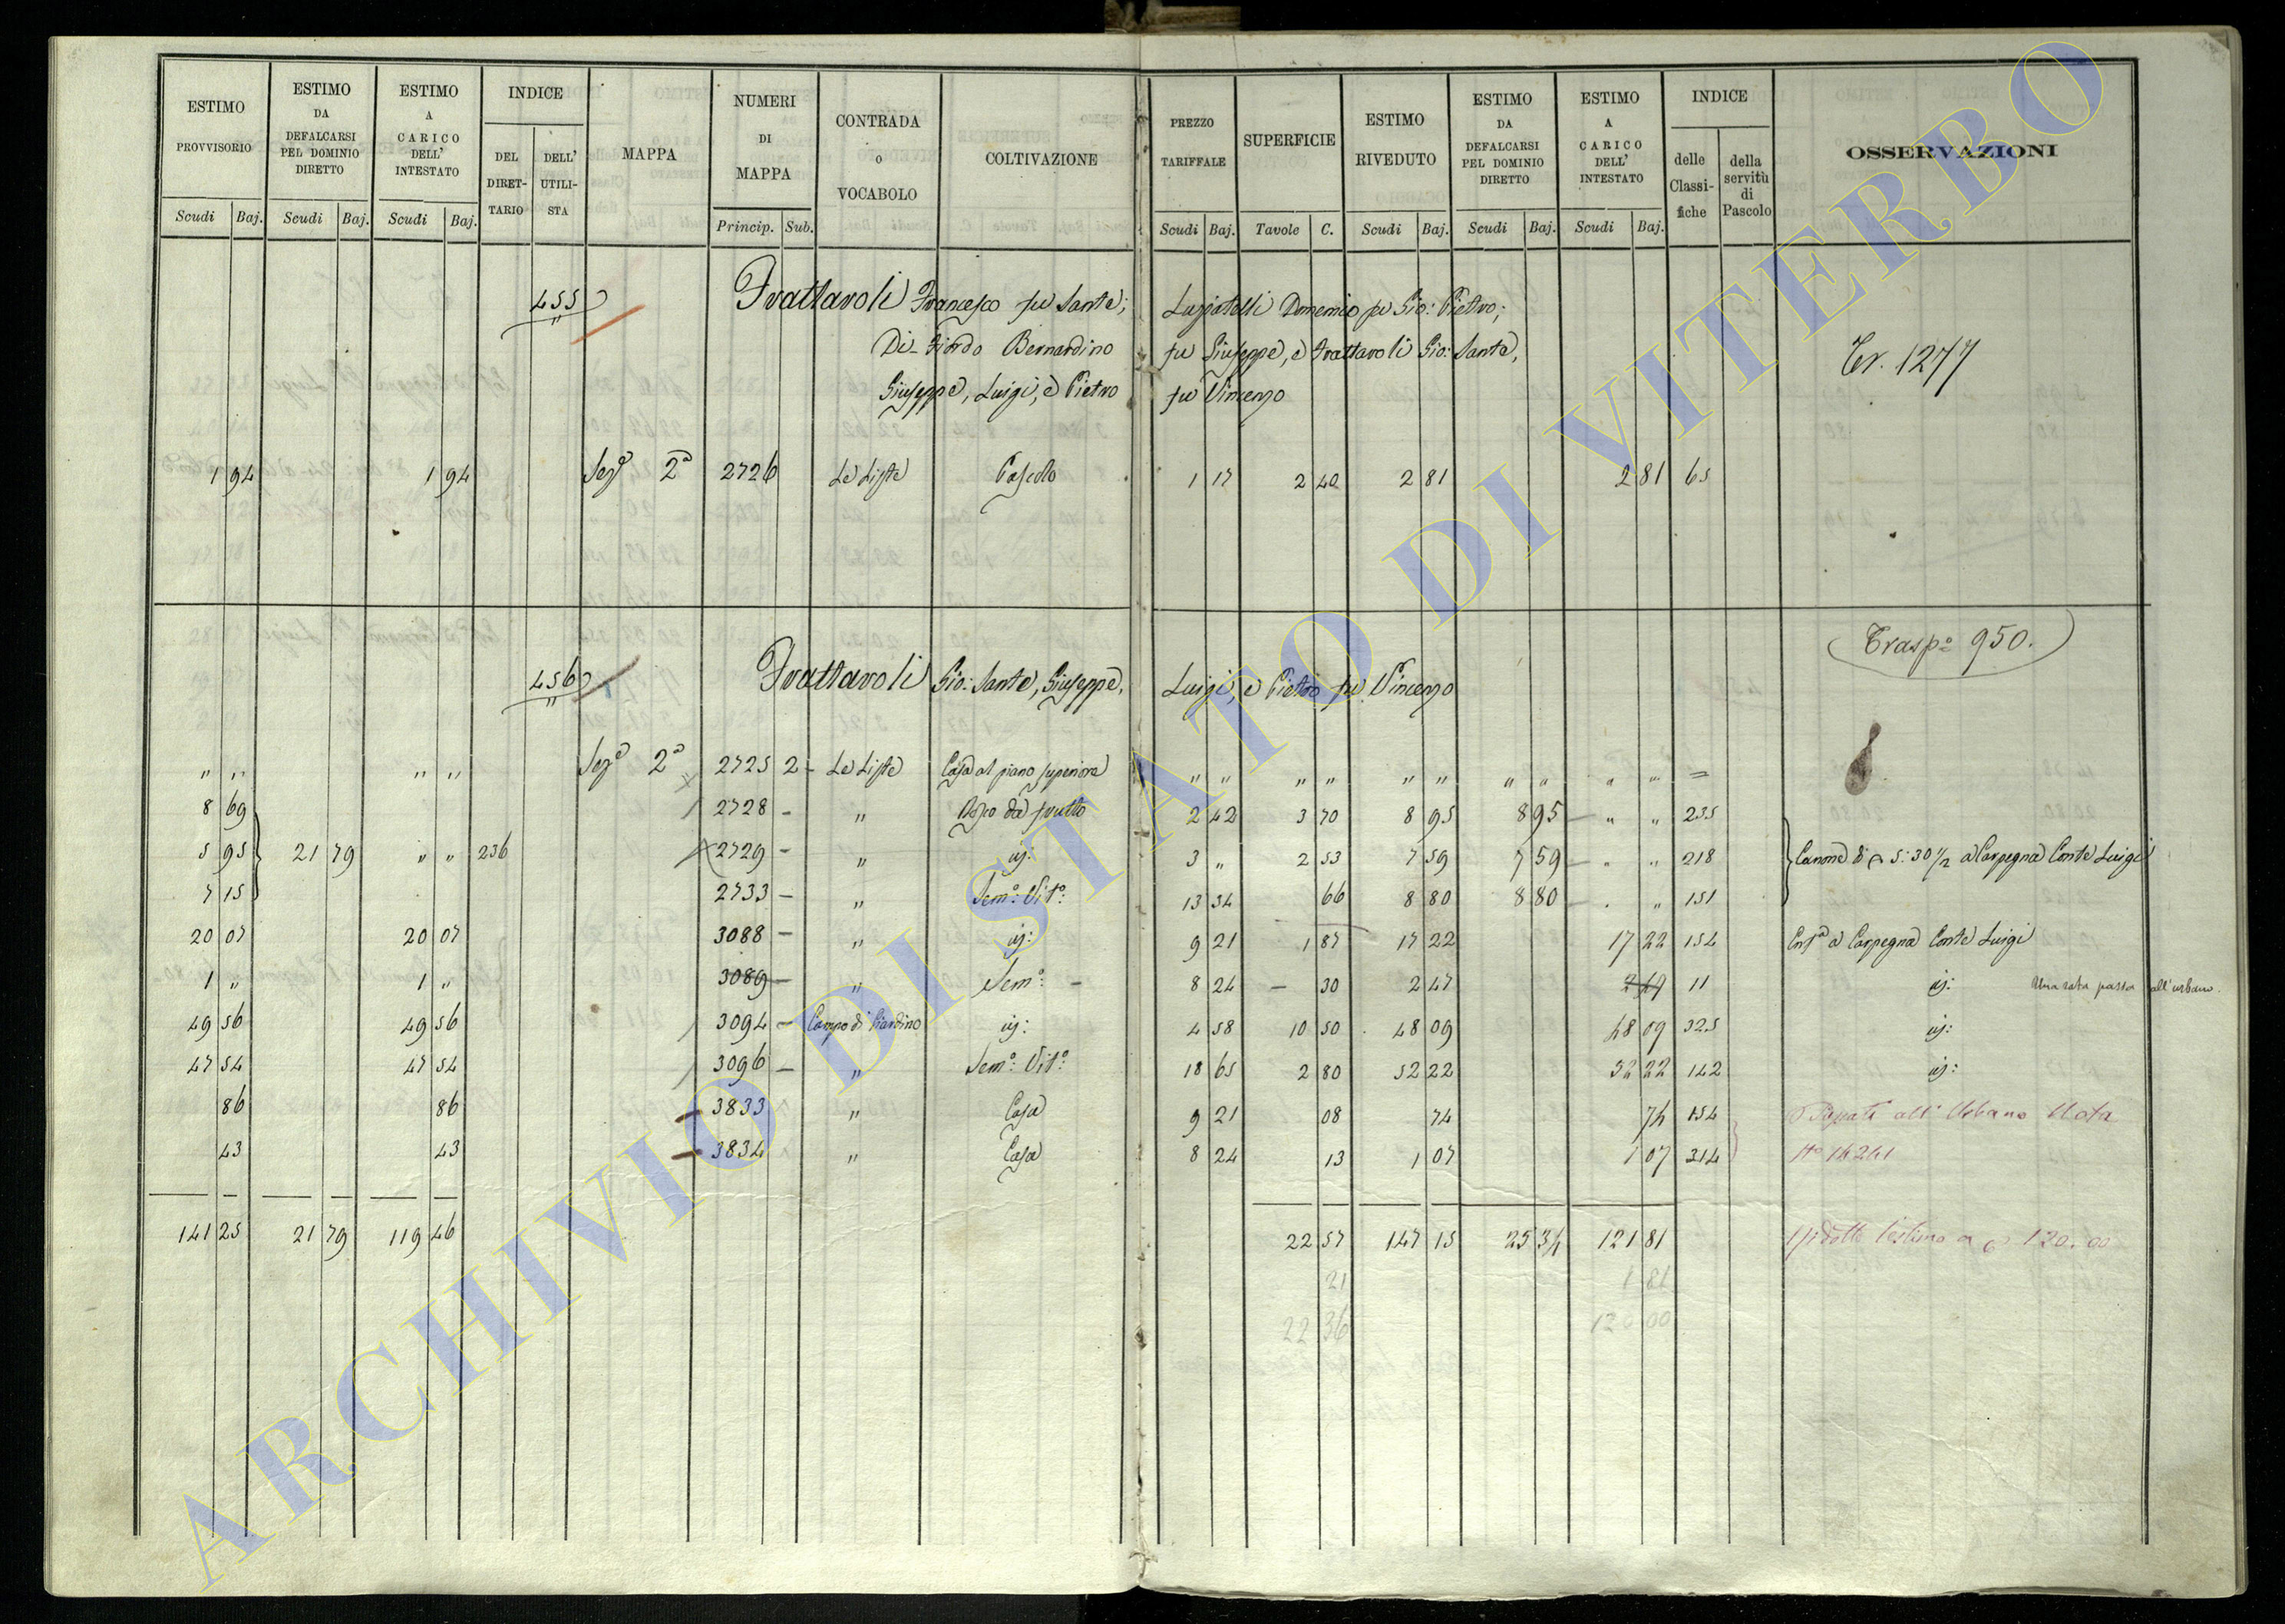 ESTIMO PROVVISORIO
ESTIMO DA DEFALCARSI PEL DOMINIO DIRETTO
ESTIMO A CARICO DELL' INTESTATO
INDICE
DEL DIRET-TARIO
DELL' UTILI-STA
MAPPA
NUMERI DI MAPPA
CONTRADA O VOCABOLO
COLTIVAZIONE
PREZZO TARIFFALE
SUPERFICIE
ESTIMO RIVEDUTO
ESTIMO DA DEFALCARSI PEL DOMINIO DIRETTO
ESTIMO A CARICO DELL' INTESTATO
INDICE
delle Classi-fiche
della servitù di Pascolo
OSSERVAZIONI
Scudi Baj. Scudi Baj. Scudi Baj. Princip. Sub. Scudi Baj. Tavole C. Scudi Baj. Scudi Baj. Scudi Baj.
455 Frattaroli Francesco fu Sante; Domenico fu Gio: Pietro;
Di-Fiordo Bernardino fu Giuseppe, e Frattaroli Gio: Sante,
Giuseppe, Luigi, e Pietro fu Vincenzo
Tr. 1277
1 94 1 94 Sez.e 2a 2726 Le Liste Pascolo 1 17 2 40 2 81 2 81 65
Trasp.o 950.
456 Frattaroli Gio: Sante, Giuseppe, Luigi, e Pietro fu Vincenzo
" " " " Sez.e 2a 2725 2 - Le Liste Casa al piano superiore " " " " " " " " " " =
8 69 2728 - " da frutto 2 42 3 70 8 95 8 95 - " " 235
5 95 21 79 " " 236 2729 - " id: 3 " 2 53 7 59 7 59 - " " 218 Canone di 5:30 1/2 a Carpegna Conte Luigi
7 15 2733 - " Sem.o Vit.o 13 34 66 8 80 8 80 - " " 151
20 07 20 07 3088 - " id: 9 21 1 87 17 22 17 22 154 a Carpegna Conte Luigi
1 " 1 " 3089 - " Sem.o - 8 24 - 30 2 47 11 id: Una rata passa all'urbano.
49 56 49 56 3094 - Campo di Giardino id: 4 58 10 50 48 09 48 09 325 id:
47 54 47 54 3096 - " Sem.o Vit.o 18 65 2 80 52 22 52 22 142 id:
86 86 3833 " Casa 9 21 08 74 74 154 all'Urbano Nota
43 43 3834 " Casa 8 24 13 1 07 1 07 314 No 14241
141 25 21 79 119 46 22 57 147 15 25 34 121 81 l'estimo a 120.00
21 1 81
22 36 120 00
ARCHIVIO DI STATO DI VITERBO